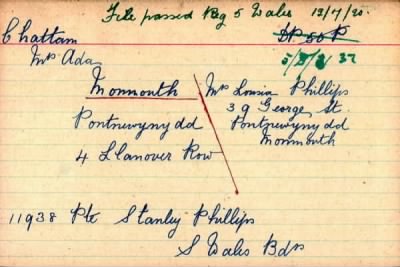 File passed Reg 5 Wales 12/7/20.
Chattam
Mrs Ada
Monmouth
Pontnewynydd
4 Llanover Row
Mrs Lousia Phillips
39 George St.
Pontnewynydd
Monmouth
11938 Pte Stanley Phillips
S Wales Bdrs